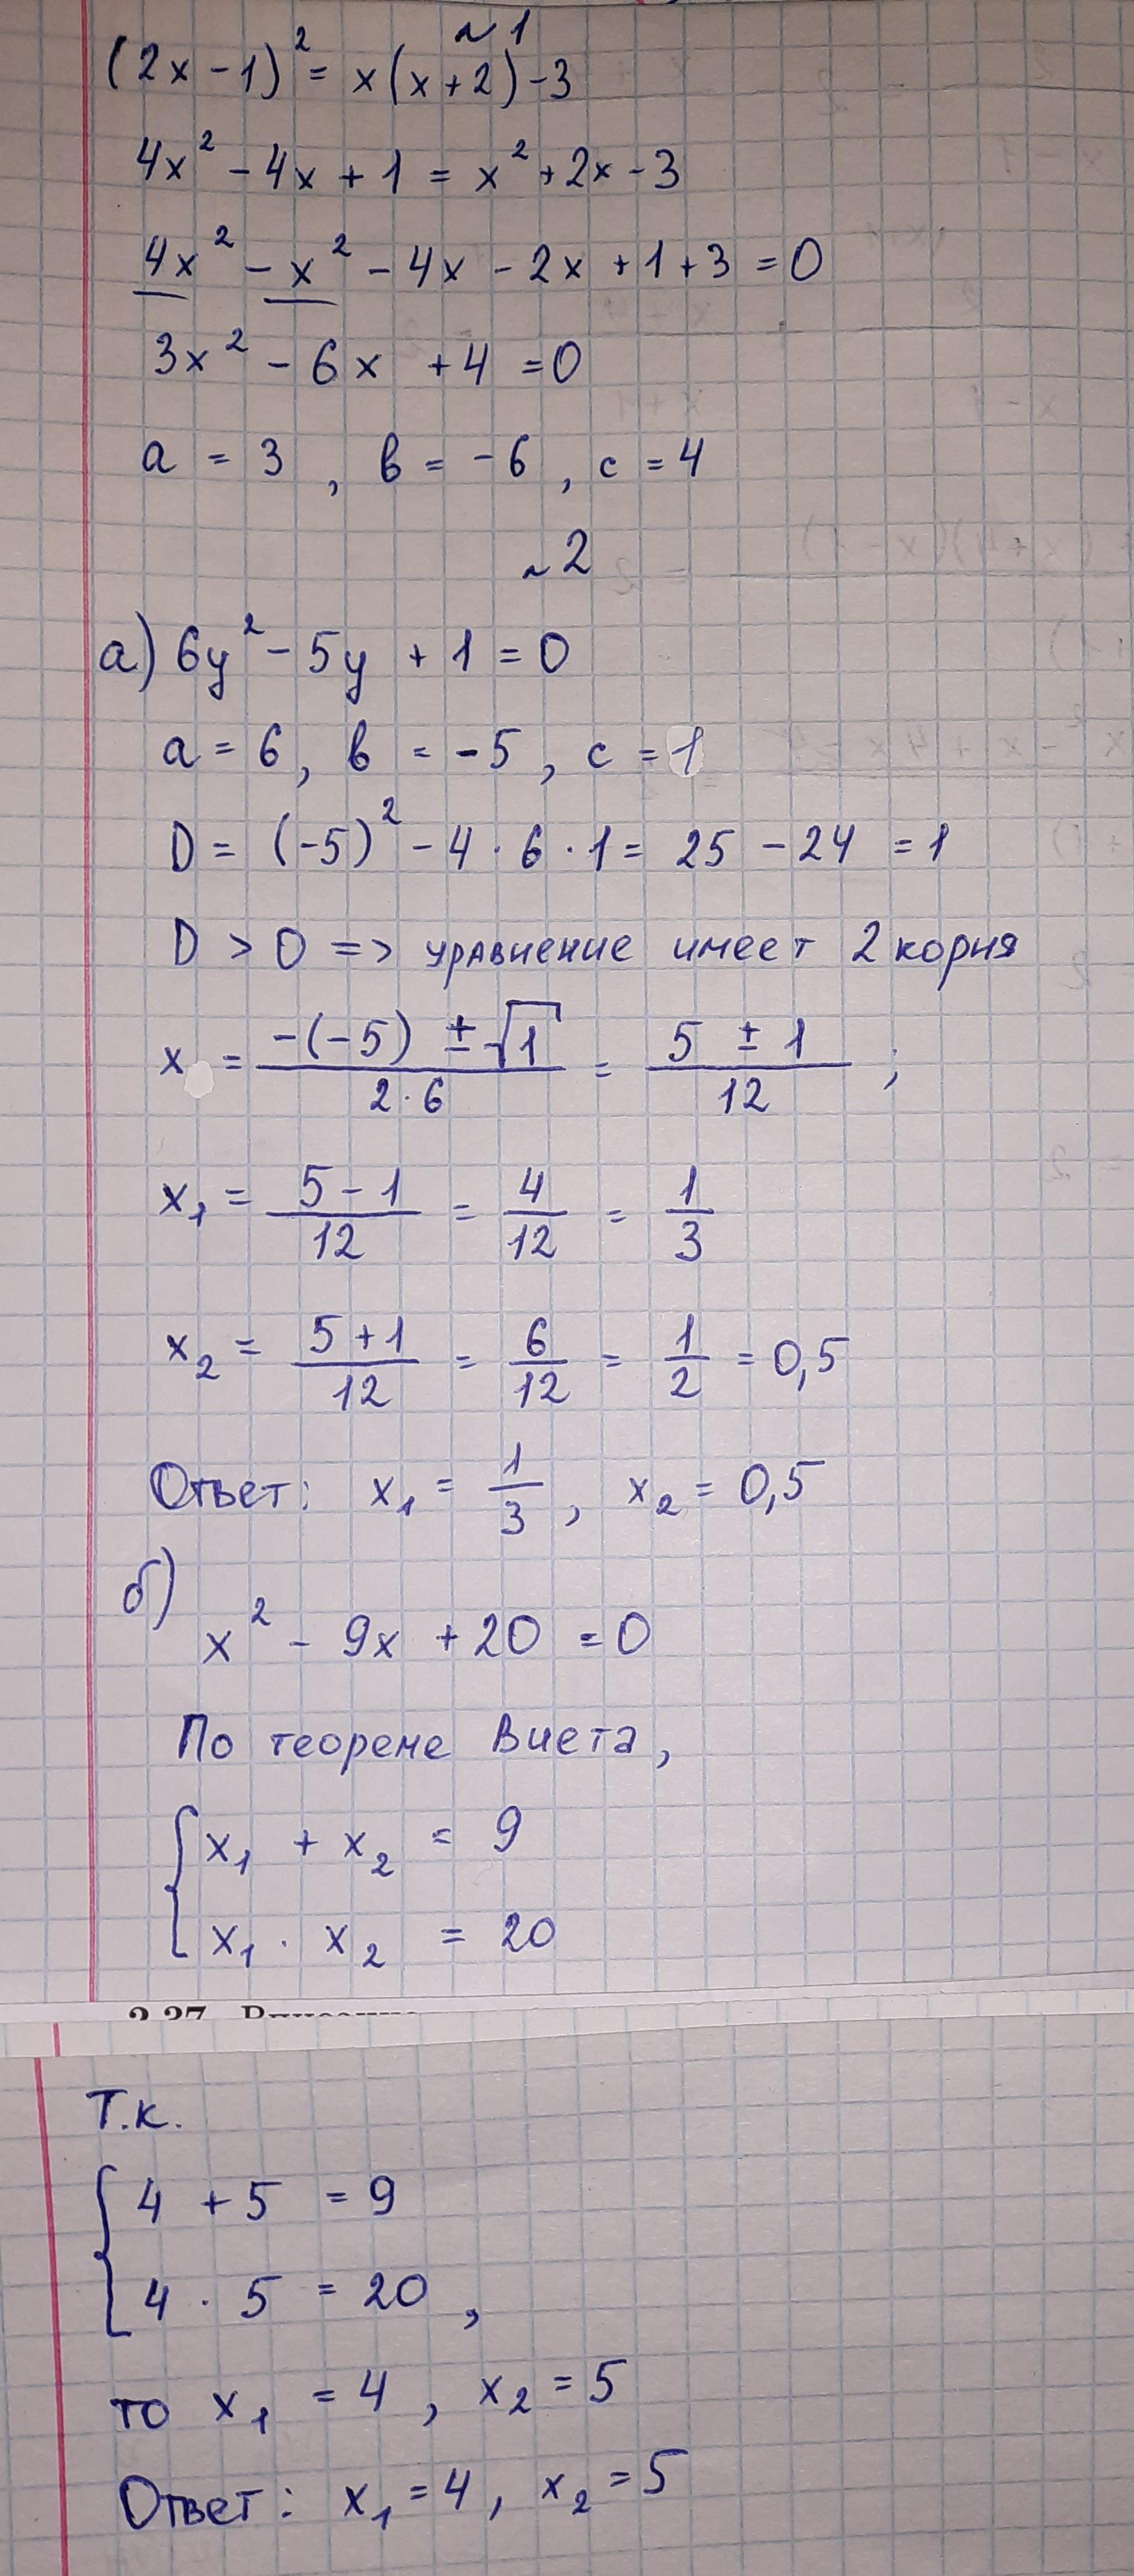 ~ 1
(2x - 1)² = x(x + 2) - 3
4x² - 4x + 1 = x² + 2x - 3
4x² - x² - 4x - 2x + 1 + 3 = 0
3x² - 6x + 4 = 0
a = 3, в = -6, c = 4
~ 2
а) 6y² - 5y + 1 = 0
a = 6, в = -5, c = 1
D = (-5)² - 4 · 6 · 1 = 25 - 24 = 1
D > 0 => уравнение имеет 2 корня
x = (-(-5) ± √1) / (2 · 6) = (5 ± 1) / 12 ;
x₁ = (5 - 1) / 12 = 4/12 = 1/3
x₂ = (5 + 1) / 12 = 6/12 = 1/2 = 0,5
Ответ: x₁ = 1/3, x₂ = 0,5
б)
x² - 9x + 20 = 0
По теореме Виета,
{ x₁ + x₂ = 9
x₁ · x₂ = 20
Т.к.
{ 4 + 5 = 9
4 · 5 = 20 ,
то x₁ = 4, x₂ = 5
Ответ: x₁ = 4, x₂ = 5